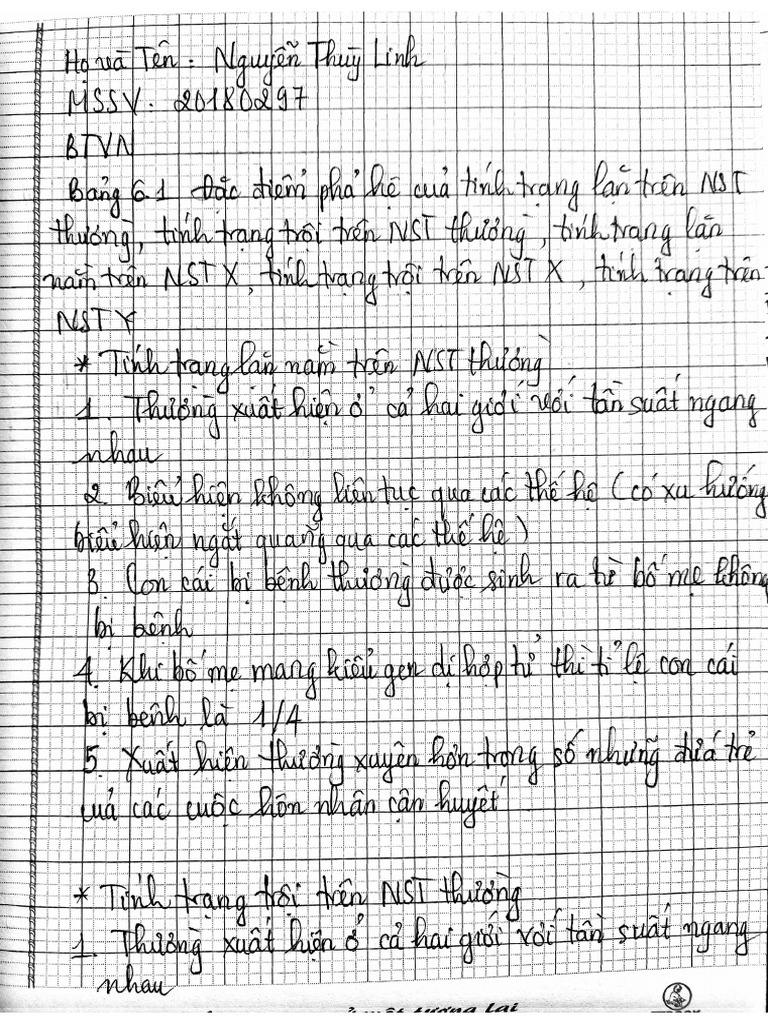 Họ và Tên : Nguyễn Thuỳ Linh
MSSV: 20180297
BTVN
Bảng 6.1 Đặc điểm phả hệ của tính trạng lặn trên NST
thường, tính trạng trội trên NST thường, tính trạng lặn
nằm trên NST X, tính trạng trội trên NST X, tính trạng trên
NST Y
* Tính trạng lặn nằm trên NST thường
1. Thường xuất hiện ở cả hai giới với tần suất ngang
nhau
2. Biểu hiện không liên tục qua các thế hệ (có xu hướng
biểu hiện ngắt quãng qua các thế hệ)
3. Con cái bị bệnh thường được sinh ra từ bố mẹ không
bị bệnh
4. Khi bố mẹ mang kiểu gen dị hợp tử thì tỉ lệ con cái
bị bệnh là 1/4
5. Xuất hiện thường xuyên hơn trong số những đứa trẻ
của các cuộc hôn nhân cận huyết
* Tính trạng trội trên NST thường
1. Thường xuất hiện ở cả hai giới với tần suất ngang
nhau
tương lai